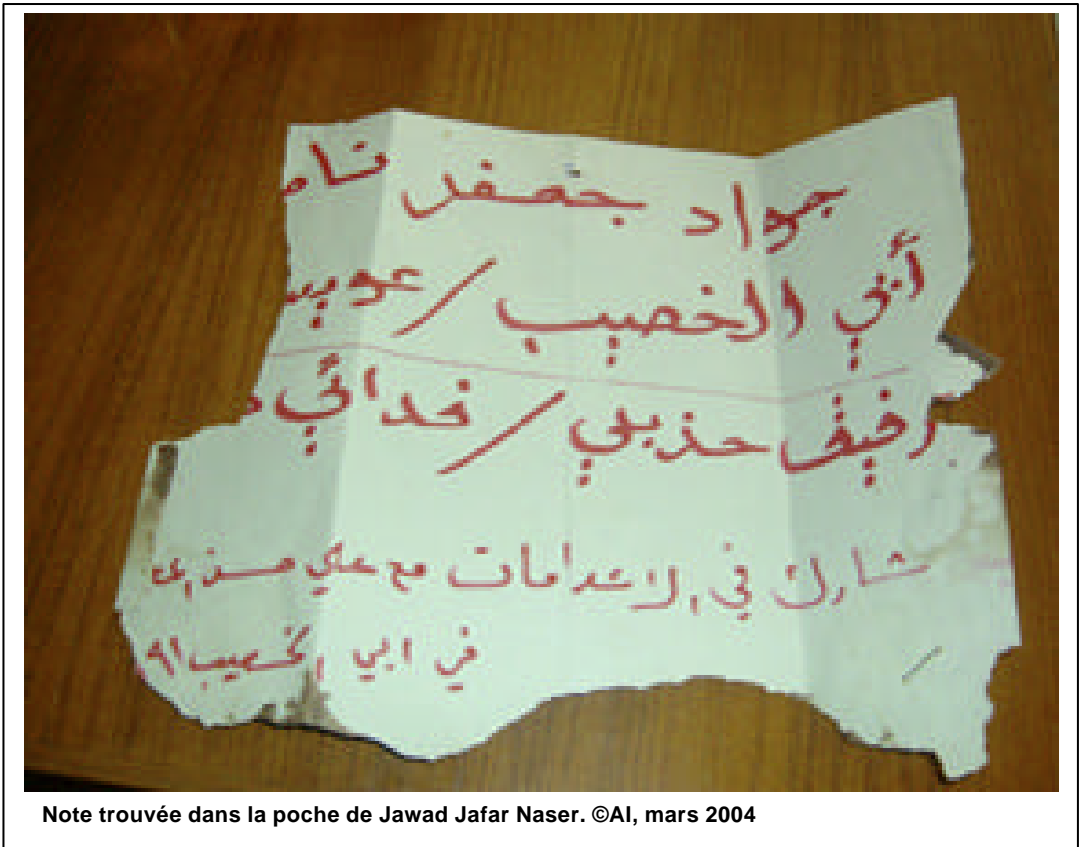 جواد جعفر ناص
أبي الخصيب / عويس
رفيق حزبي / فدائي
شارك في الاعدامات مع علي حسن
في ابي الخصيب ٩١
Note trouvée dans la poche de Jawad Jafar Naser. ©AI, mars 2004